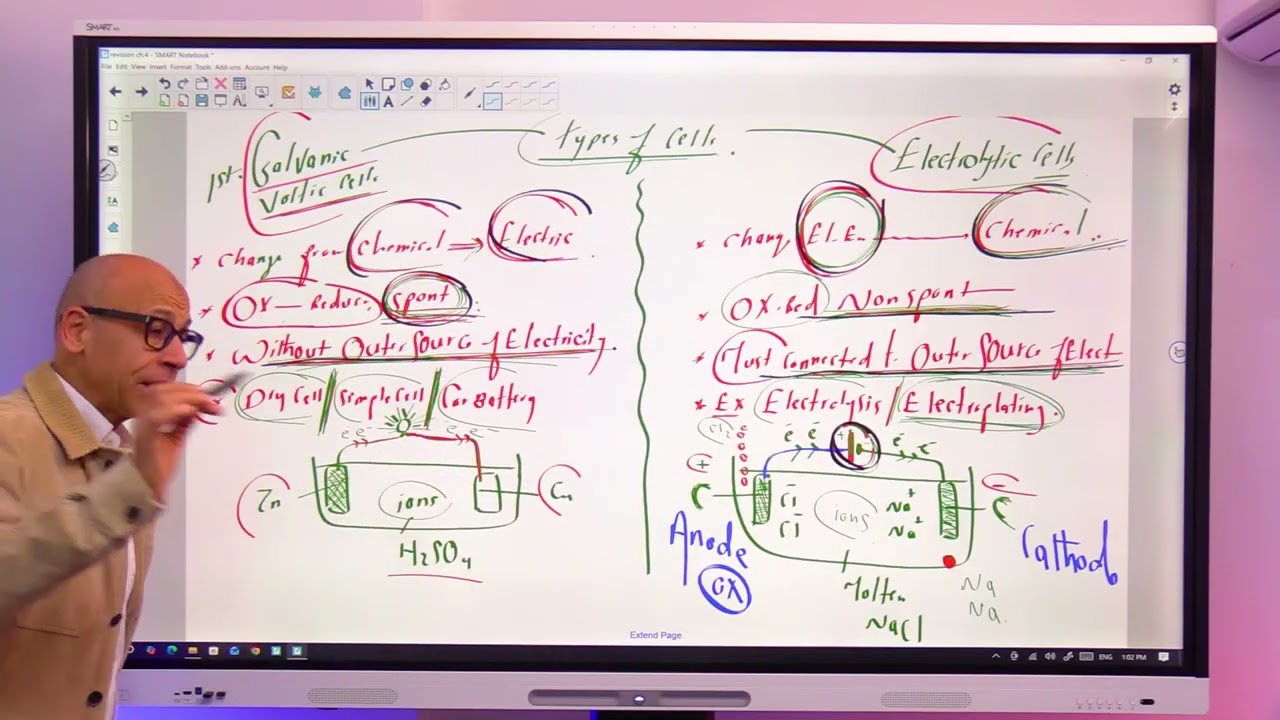 SMART
revision ch.4 - SMART Notebook *
File Edit View Insert Format Tools Add-ons Account Help
Types of Cells.
1st. Galvanic
Voltic Cells
* Change from Chemical ⇒ Electric
* OX - Reduc. spont.
* Without Outer Source of Electricity.
Dry Cell / Simple Cell / Car Battery
e⁻ e⁻ e⁻ e⁻
Zn
ions
Cu
H₂SO₄
Electrolytic Cells
* Chang El.E. Chemical.
* OX-Red Non spont
* Must Connected t. Outer Source of Elect
* Ex Electrolysis / Electroplating.
Cl₂
e⁻ e⁻ + - e⁻ e⁻
+
-
C
Cl⁻
Cl⁻
ions
Na⁺
Na⁺
C
Anode
OX
Cathod
Molten
NaCl
Na
Na.
Extend Page
ENG 1:02 PM